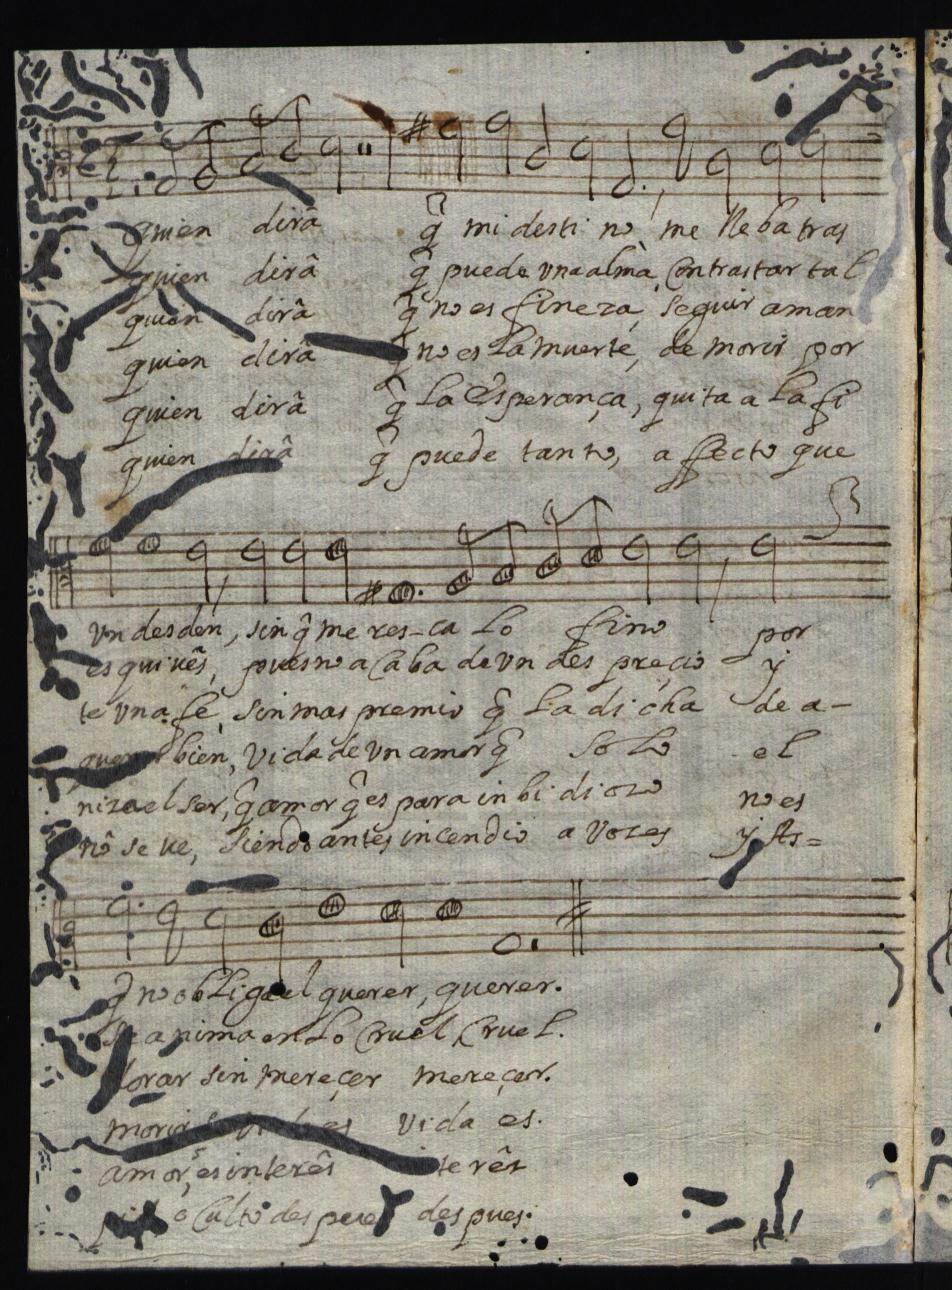 quien dirâ q̂ mi desti no me lleba tras
quien dirâ q̂ puede vna alma, Contrastar tal
quien dirâ q̂ no es fineza, seguir aman
quien dirâ no es la muerte, de morir por
quien dirâ q̂ la Esperança, quita a la fi
quien dirâ q̂ puede tanto, afecto que
vn desden, sin q̂ me res-ca lo fino por
esquiuês, pues no acaba de vn des preçio y
te vna fe, sin mas premio q̂ la dicha de a-
bien, vida de vn amor q̂ solo el
niza el ser, q̂ amor q̂ es para inbidiozo no es
nô se ve, siendo antes incendio a vozes y As=
q̂ no obliga el querer, querer.
se anima en lo Cruel, Cruel.
dorar sin mereçer mereçer.
morir es vida es.
amor, es interês terês
oculto despues despues.